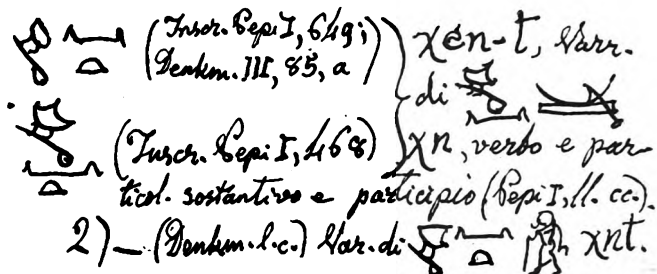 (Inscr. Pepi I, 649; Denkm. III, 85, a) χen-t, Varr. di
(Inscr. Pepi I, 468) χn, verbo e par-
ticol. sostantivo e participio (Pepi I, ll. cc.).
2) — (Denkm. l. c.) Var. di χnt.